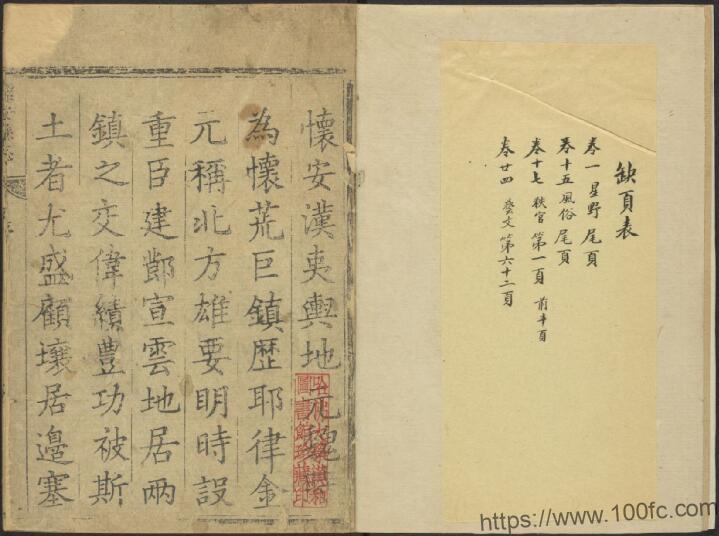 缺頁表
卷一 星野 尾頁
卷十五 風俗 尾頁
卷十七 秩官 第一頁 前半頁
卷廿四 藝文 第六十二頁
懷安漢夷輿地元魏
為懷荒巨鎮歴耶律金
元稱北方雄要明時設
重臣建鄼宣雲地居两
鎮之交偉績豊功被斯
土者尤盛顧壤居邊塞
哈佛大學漢和
圖書館珍藏印
https://www.100fc.com